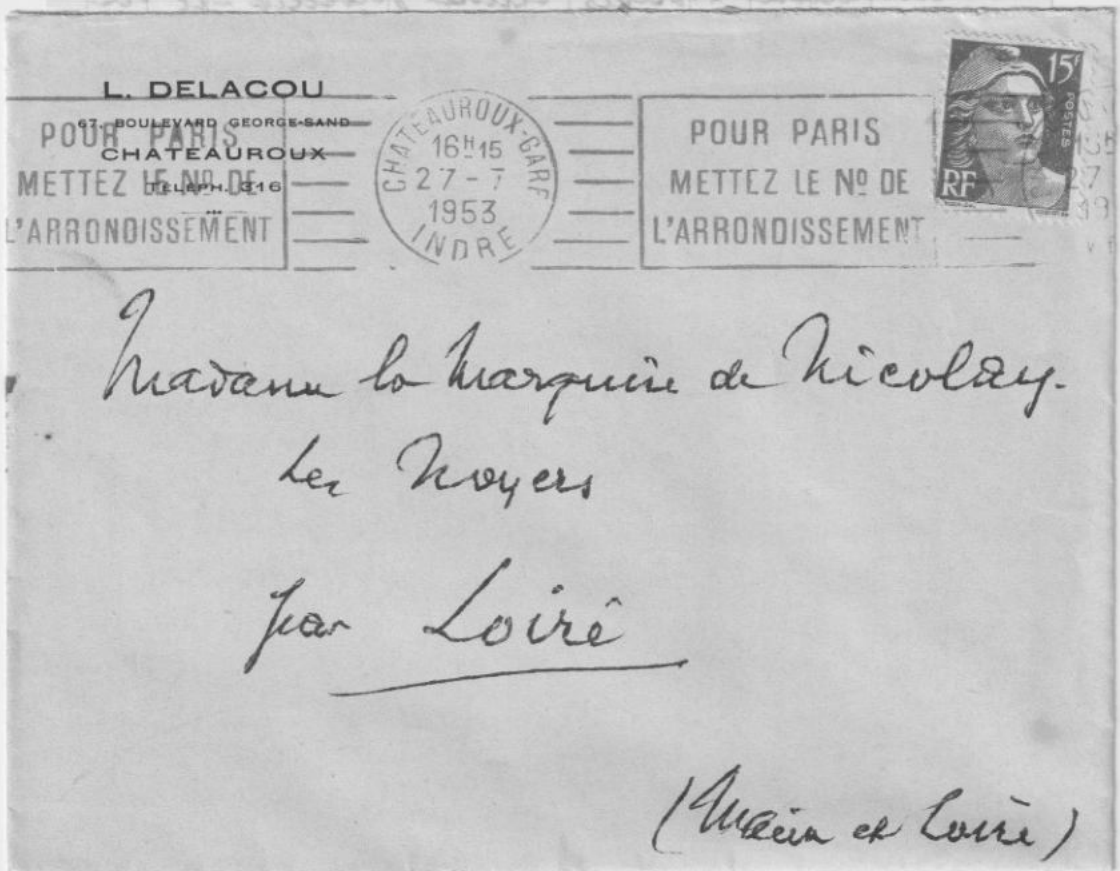 L. DELACOU
67, BOULEVARD GEORGE-SAND
CHATEAUROUX
TÉLÉPH. 316
POUR PARIS
METTEZ LE Nº DE
L'ARRONDISSEMENT
CHATEAUROUX-GARE
16H15
27-7
1953
INDRE
POUR PARIS
METTEZ LE Nº DE
L'ARRONDISSEMENT
15F
POSTES
RF
Madame la Marquise de Nicolaÿ.
Les Noyers
par Loiré
(Maine et Loire)